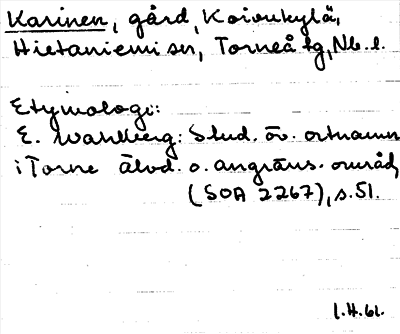 Karinen, gård, Koivukylä,
Hietaniemi sn, Torneå tg, Nb. l.
Etymologi:
E. Wahlberg: Stud. öv. ortnamn
i Torne älvd. o. angräns. områd,
(SOA 2267), s. 51.
1.H.61.